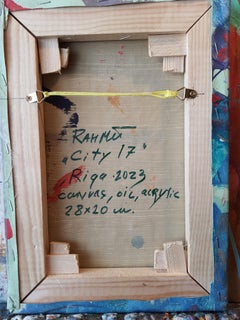 RAHMU
„City 17"
Riga 2023
canvas, oil, acrylic
28x20 cm.